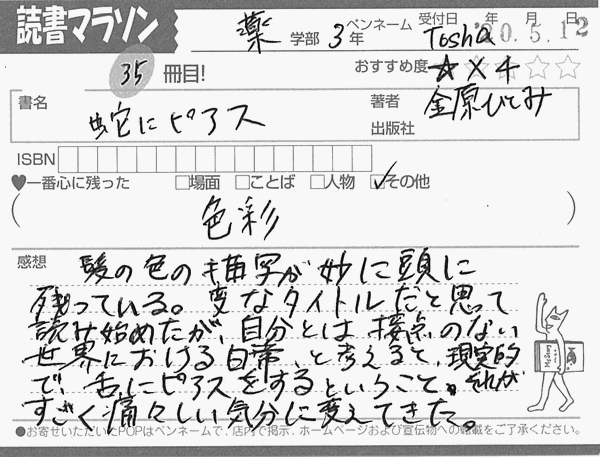 読書マラソン
薬 学部 3年 ペンネーム Tosha 受付日 年 月 日 20.5.12
35 冊目! おすすめ度 ★×4 ☆☆
書名 蛇にピアス 著者 金原ひとみ
出版社
ISBN
♥一番心に残った □場面 □ことば □人物 ☑その他
( 色彩 )
感想 髪の色の描写が妙に頭に
残っている。変なタイトルだと思って
読み始めたが、自分とは接点のない
世界における日常、と考えると、現実的
で、舌にピアスをするということ。それが
すごく痛々しい気分に変えてきた。
●お寄せいただいたPOPはペンネームで、店内で掲示、ホームページおよび宣伝物への転載をご了承ください。